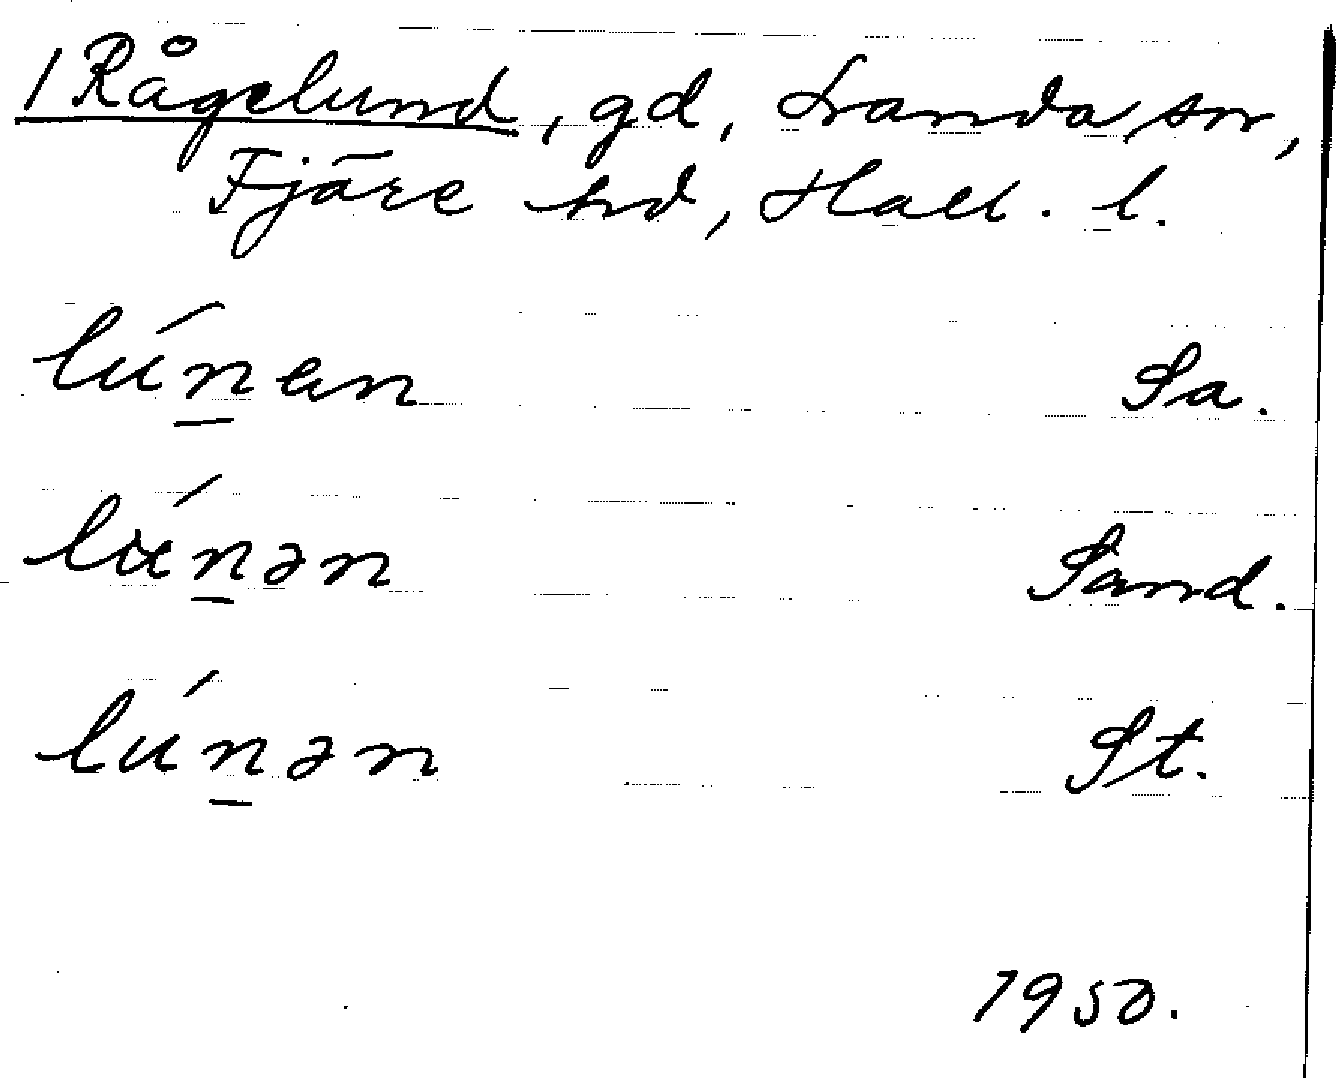 1 Rågelund, gd, Landa sn,
Fjäre hd, Hall. l.
lúṉan Sa.
lúṉən Sand.
lúṉən St.
1950.